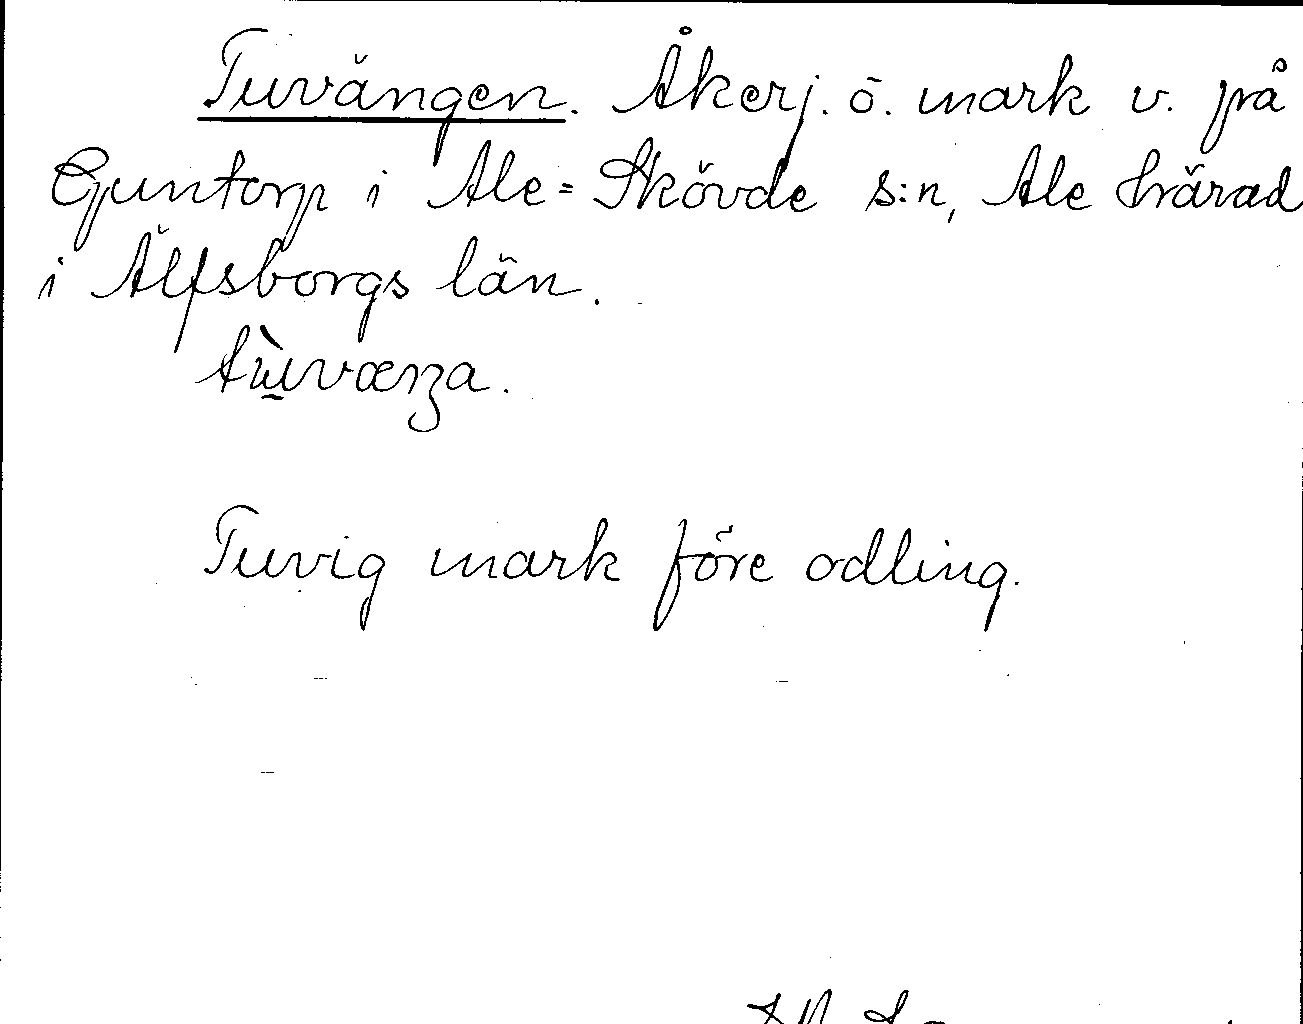 Tuvängen. Åkerj. ö. mark v. på
Guntorp i Ale-Skövde s:n, Ale härad
i Älfsborgs län.
Tuvig mark före odling.